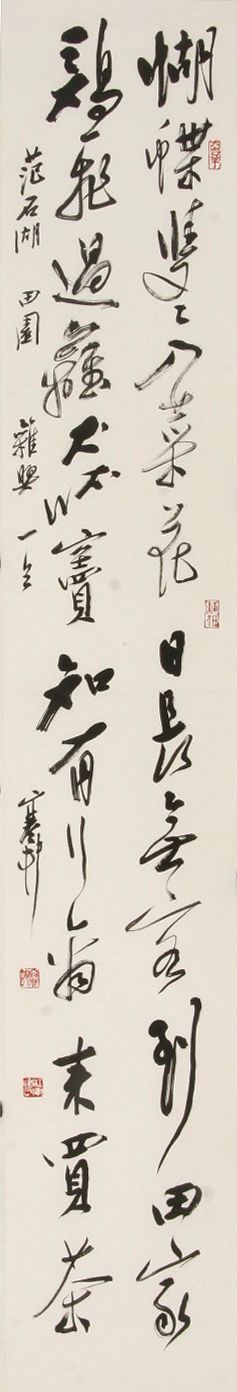 蝴蝶雙〻入菜花日長無客到田家
鷄飛過籬犬吠竇知有行商來買茶
范石湖田園雜興一首